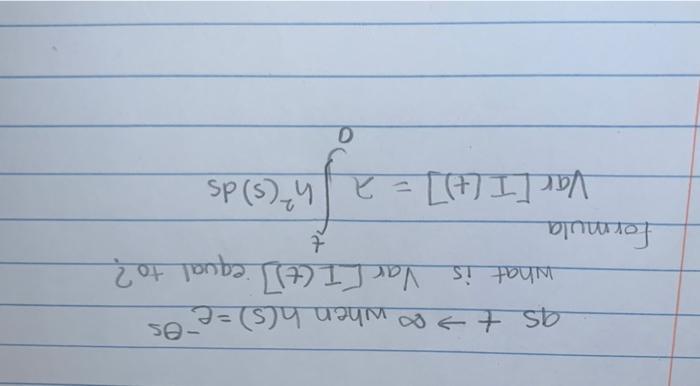 as t → ∞ when h(s) = e^{-θs}
what is Var [I(t)] equal to?
formula
Var [I(t)] = λ ∫_0^t h²(s) ds